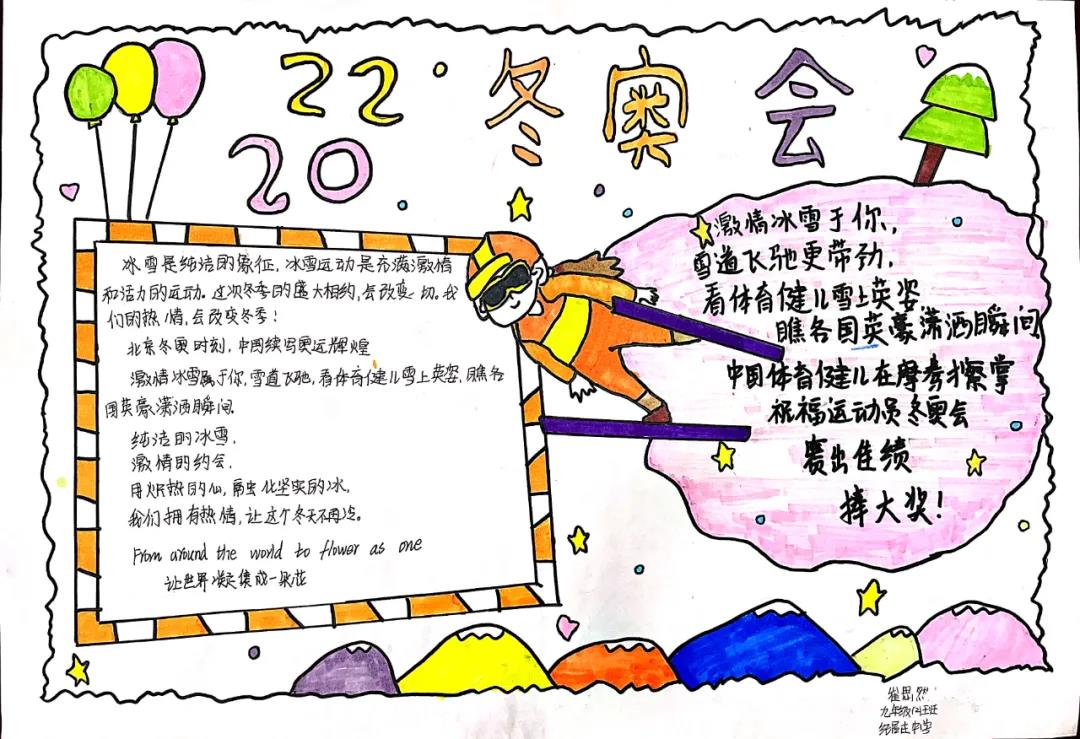 22
20
冬奥会
冰雪是纯洁的象征，冰雪运动是充满激情
和活力的运动。这次冬季的盛大相约，会改变一切。我
们的热情，会改变冬季！
北京冬奥时刻，中国续写奥运辉煌
激情冰雪属于你，雪道飞驰，看体育健儿雪上英姿，瞧各
国英豪潇洒瞬间。
纯洁的冰雪，
激情的约会，
用炽热的心，融化坚实的冰，
我们拥有热情，让这个冬天不再冷。
From around the world to flower as one
让世界凝集成一朵花
激情冰雪于你，
雪道飞驰更带劲，
看体育健儿雪上英姿
瞧各国英豪潇洒瞬间
中国体育健儿在摩拳擦掌
祝福运动员冬奥会
赛出佳绩
捧大奖！
崔思然
九年级
中学